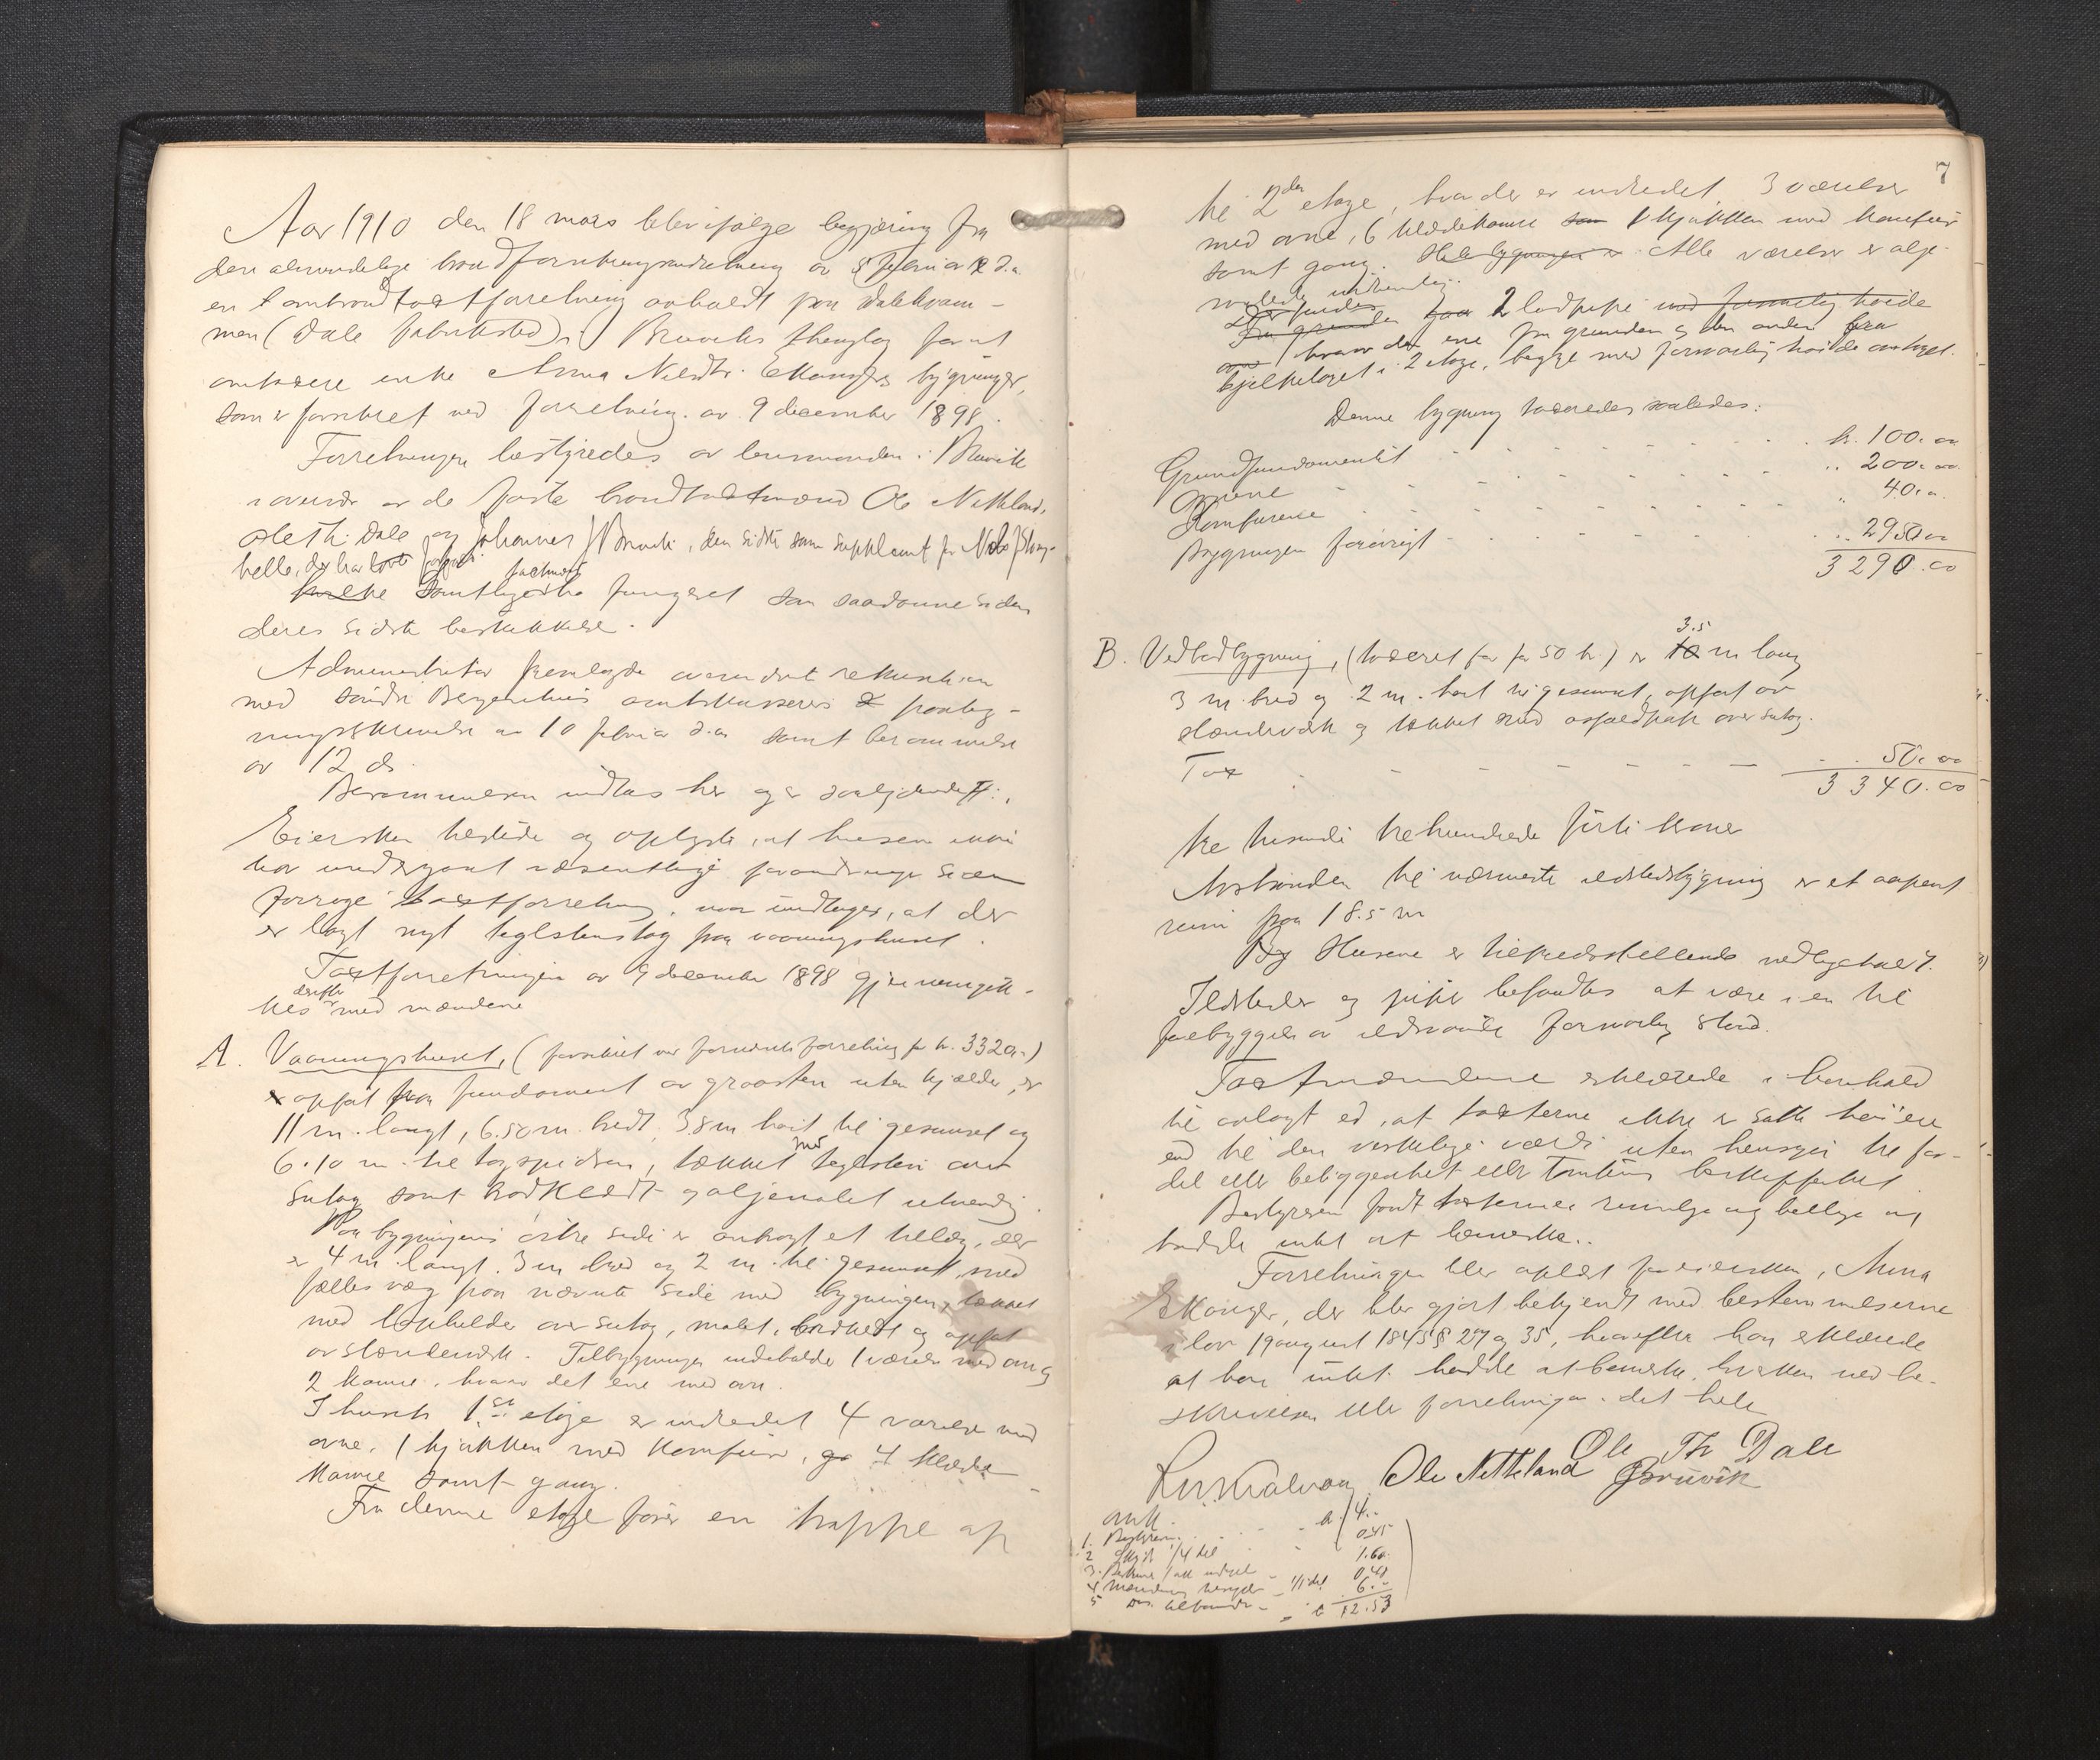 Aar 1910 den 18 mars blev ifølge begjæring fra
den almindelige brandforsikringsindretning av 8 februar d.a.
en omtaxtforretning avholdt paa Dalekvam-
men (Dale fabriksted) i Bruviks thinglag for at
omtaxere enke Anna Nilsdtr. Ekangers bygninger,
som er forsikret ved forretning av 9 december 1898.
Forretningen bestyredes av lensmanden i Bruvik
i overvær av de faste brandtaxtmænd Ole Netteland,
Ole Th. Dale og Johannes J Bruvik, den sidste som suppleant for
helle, der har forfald
samtlige fungeret som saadanne siden
deres sidste beskikkelse.
Administrator fremlagde rekvisition
med søndre Bergenhus amtskasserers paateg-
ningsskrivelse av 10 februar d.a. samt berammelse
av 12 ds.
Berammelsen indtas her og er saalydende:
Eiersken tilstede og oplyste, at husene ikke
har undergaat væsentlige forandringer siden
forrige taxtforretning, naar undtages, at der
er lagt nyt teglstenstag paa vaaningshuset.
Taxtforretningen av 9 december 1898 gjennemgik-
kes derefter med mændene
A. Vaaningshuset, (forsikret ved forrige forretning for kr. 3320.-)
er opsat paa fundament av graasten uten kjælder, er
11 m. langt, 6.50 m. bredt, 3.8 m høit til gesimset og
6.10 m. til tagspidsen, tækket med teglsten over
sutag samt bordklædt og oljemalet utvendig.
Paa bygningens østre side er anbragt et tillæg, der
er 4 m. langt. 3 m bred og 2 m. til gesimset, med
fælles væg paa nævnte side med bygningen, tækket
med taghelder over sutag, malet, bordklædt og opsat
av stænderverk. Tilbygningen indeholder 1 værelse med ovn og
2 kamre, hvorav det ene med ovn.
I husets 1ste etage er indredet 4 værelser med
ovne, 1 kjøkken med komfur, 4 klæde
kamre samt gang.
Fra denne etage fører en trappe op
7
til 2den etage, hvor der er indredet 3 værelser
med ovne, 6 klædekamre 1 kjøkken med komfur
samt gang. Hele bygningen er Alle værelser er olje-
malede indvendig.
Der findes 2 ledpiper med forsvarlig høide
hvorav den ene fra grunden og den anden fra
bjelkelaget i 2 etage, begge med forsvarlig høide over taget.
Denne bygning taxeredes saaledes:
Grundfundamentet - - - - - kr. 100.00
Ovnene - - - - - " 200.00
Komfurene - - - - - " 40.00
Bygningen forøvrigt - - - - - " 2950.00
3290.00
B. Vedbodbygning, (taxeret før for 50 kr.) er 3.5 m lang
3 m. bred og 2 m. høit til gesimset, opsat av
stenderverk og tækket med asfaldpap over sutag.
Taxt - - - - - 50.00
3340.00
tre tusinde trehundrede førti kroner
Avstanden til nærmeste ildstedsbygning er et aapent
rum paa 18.5 m
Husene er tilfredsstillende vedligeholdt.
Ildsteder og piper befandtes at være i en til
forebyggelse av ildsvaade forsvarlig stand.
Taxtmændene erklærede i henhold
til avlagt ed, at taxterne ikke er satte høiere
end til den virkelige værdi uten hensyn til for-
del eller beliggenhet eller tomtens beskaffenhet.
Bestyreren fandt taxterne rimelige og billige og
havde intet at bemerke.
Forretningen blev oplæst for eiersken, Anna
Ekanger, der blev gjort bekjendt med bestemmelserne
i lov 19 august 1845 § 27 og 35, hvorefter hun erklærede
at hun intet havde at bemerke hverken ved be-
skrivelsen eller forretningen i det hele
Ole Netteland Ole Th Dale
Bruvik
1. Bestyrer - - - kr. 4.-
2 Skyds 1/4 del " 0.45
1.60
0.48
6.-
kr 12.53